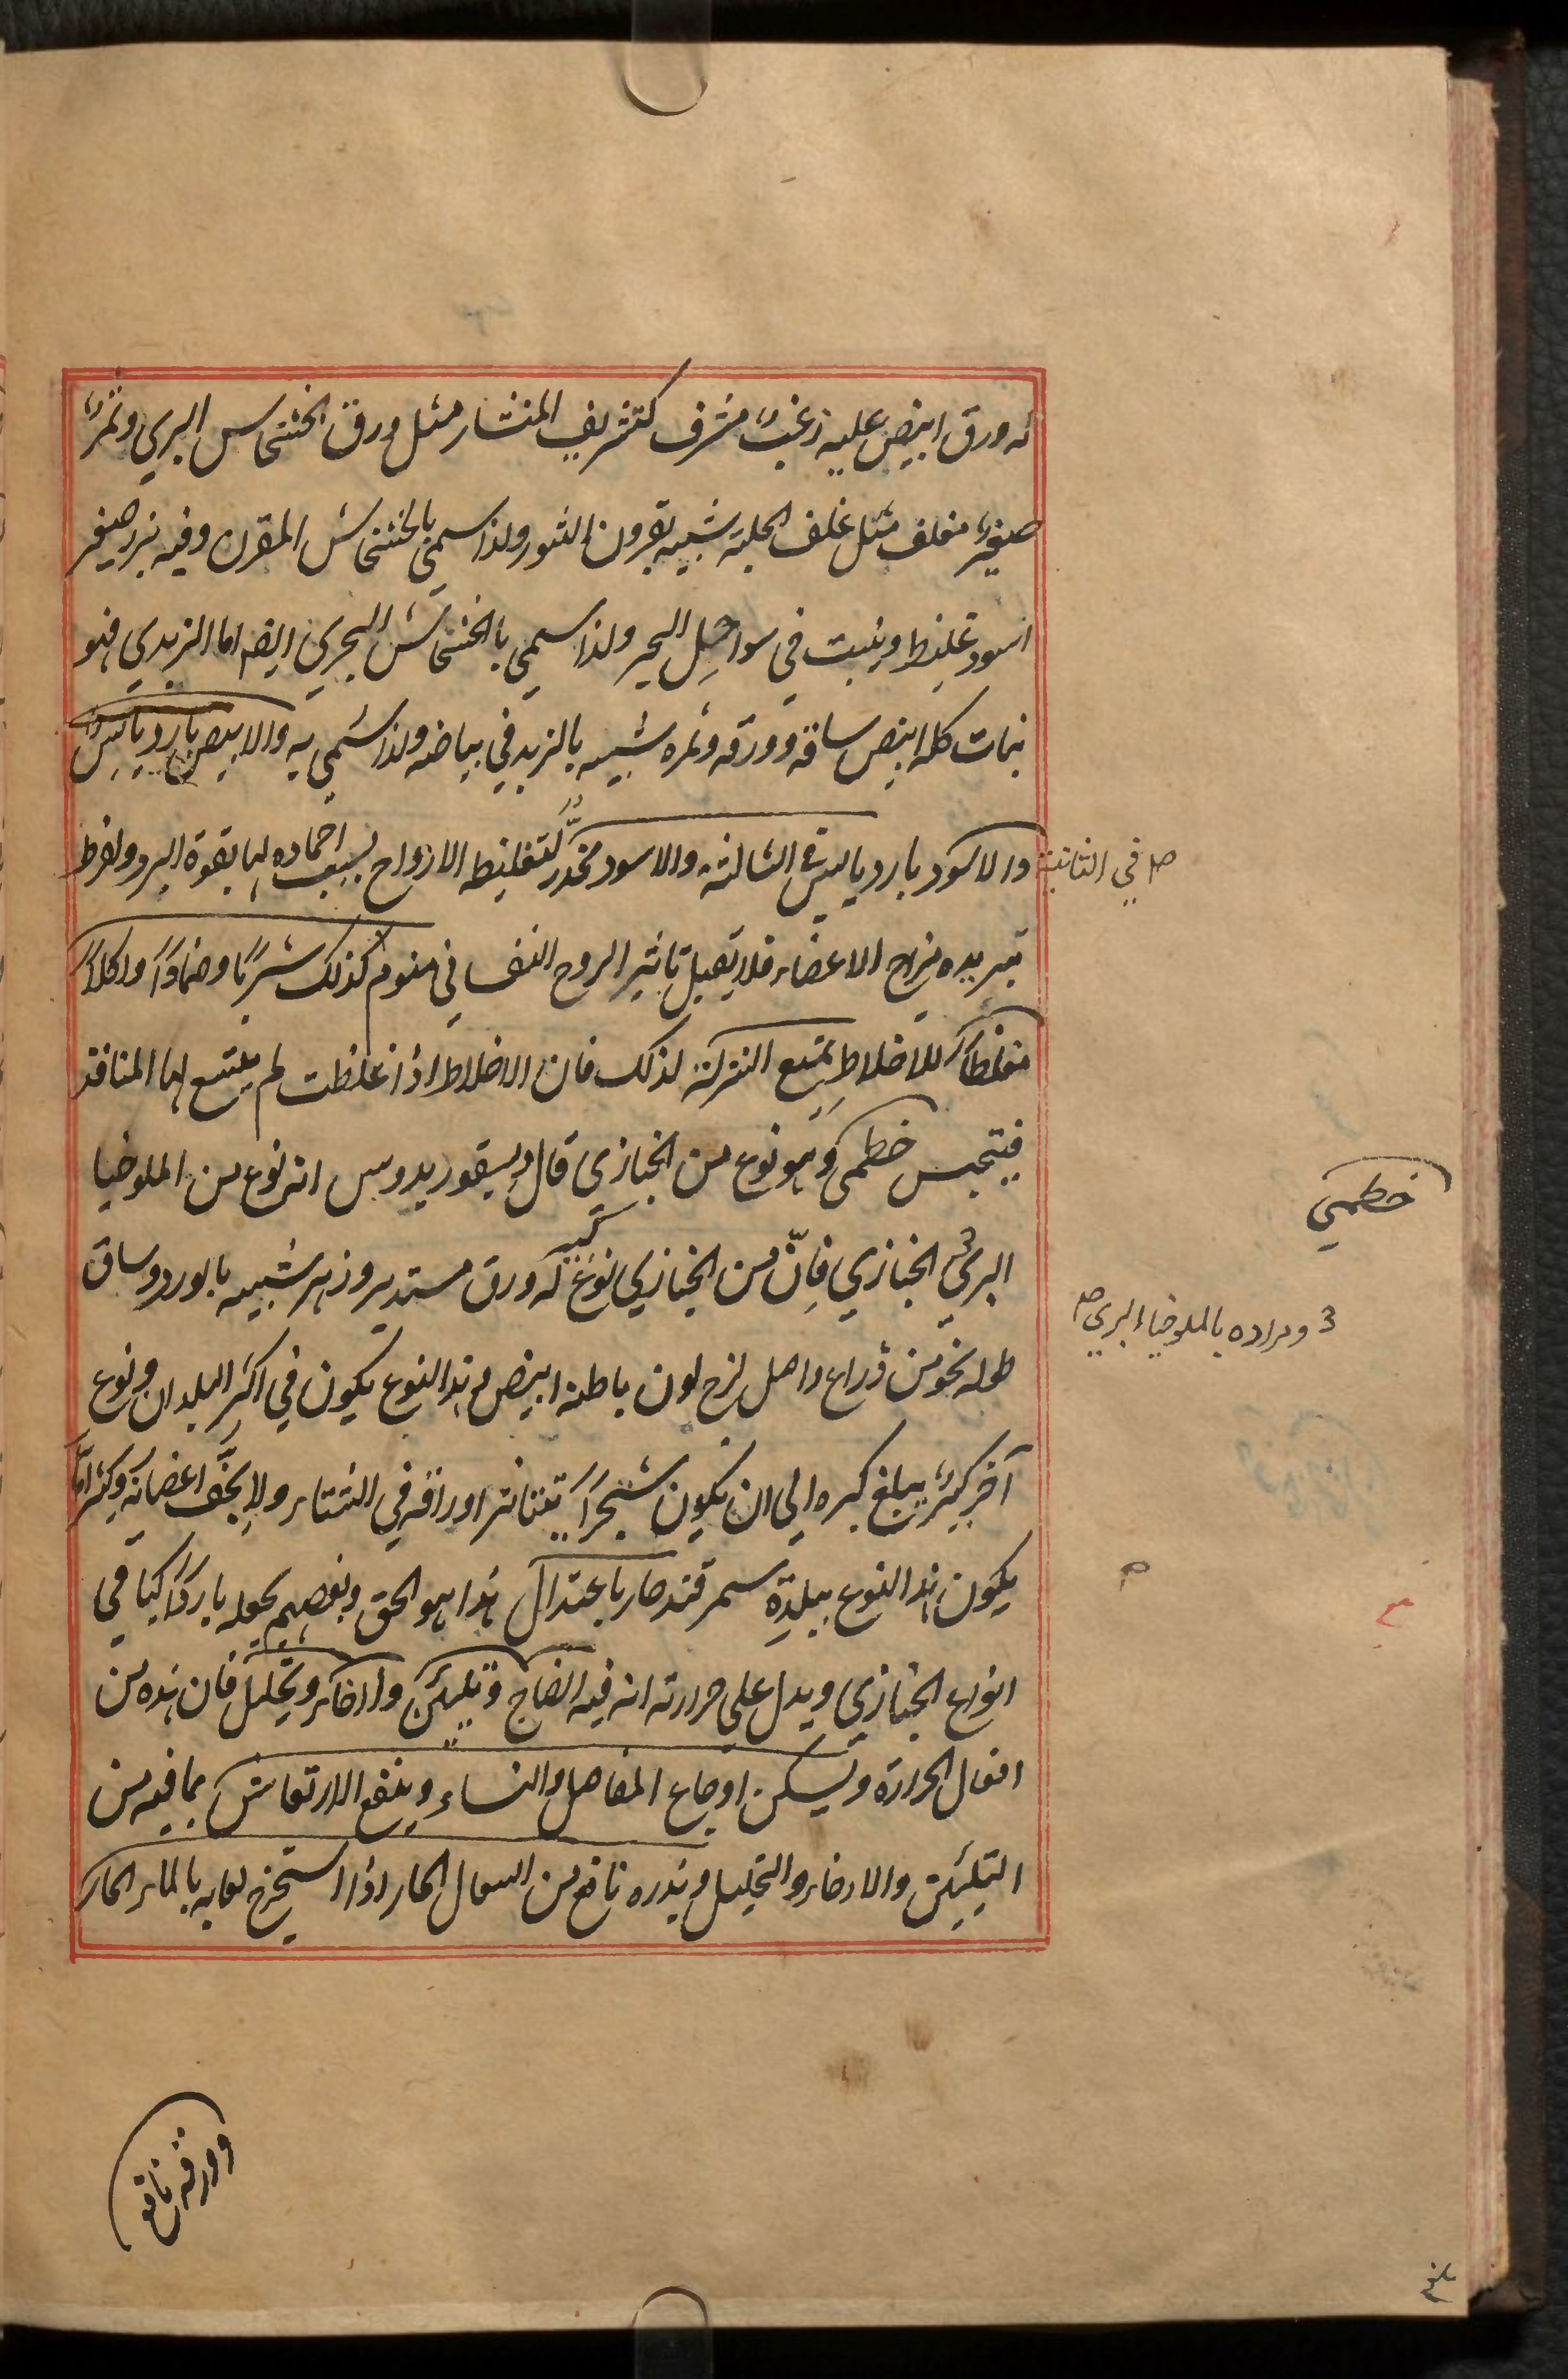 له ورق ابيض عليه زغب مشرف كتشريف المنشار مثل ورق الخشخاش البري وثمره
صغير مغلف مثل غلف الحلبة شبيه بقرون الثور ولذا سمي بالخشخاش المقرن وفيه بزر صغير
اسود غليظ وينبت في سواحل البحر ولذا سمي بالخشخاش البحري ايضا اما الزبدي فهو
نبات كله ابيض ساقه وورقه وثمره شبيه بالزبد في بياضه ولذا سمي به والابيض بارد يابس
والاسود بارد يابس في الثالثة والاسود مخدر لتغليظه الارواح بسبب اجماده لها بقوة البرد ولفرط
تبريده مزاج الاعضاء فلا تقبل تاثير الروح النفساني منوم كذلك شربا وضمادا واكلا
مغلظا للاخلاط يمنع النزلة لذلك فان الاخلاط اذا غلظت لم يتسع لها المنافذ
فيحتبس خطمى وهو نوع من الخبازى قال ديسقوريدوس انه نوع من الملوخيا
البري الخبازي فانّ من الخبازي نوع كبير له ورق مستدير وزهر شبيه بالورد وساق
طوله نحو من ذراع واصل لزج لون باطنه ابيض وهذا النوع يكون في اكثر البلدان ونوع
آخر كبير يبلغ كبره الى ان يكون شجرا يتناثر اوراقه في الشتاء ولا يجف اغصانه وكثيراما
يكون هذا النوع ببلدة سمرقند حار باعتدال هذا هو الحق وبعضهم يجعله باردا كباقي
انواع الخبازي ويدل على حرارته انه فيه انضاج وتليين وارخاء وتحليل فان هذه من
افعال الحرارة ويسكن اوجاع المفاصل والنساء وينفع الارتعاش بما فيه من
التليين والارخاء والتحليل وبذره نافع من السعال الحار اذا استخرج لعابه بالماء الحار
في الثانية
خطمي
3 ومراده بالملوخيا البري
م
وورقه نافع